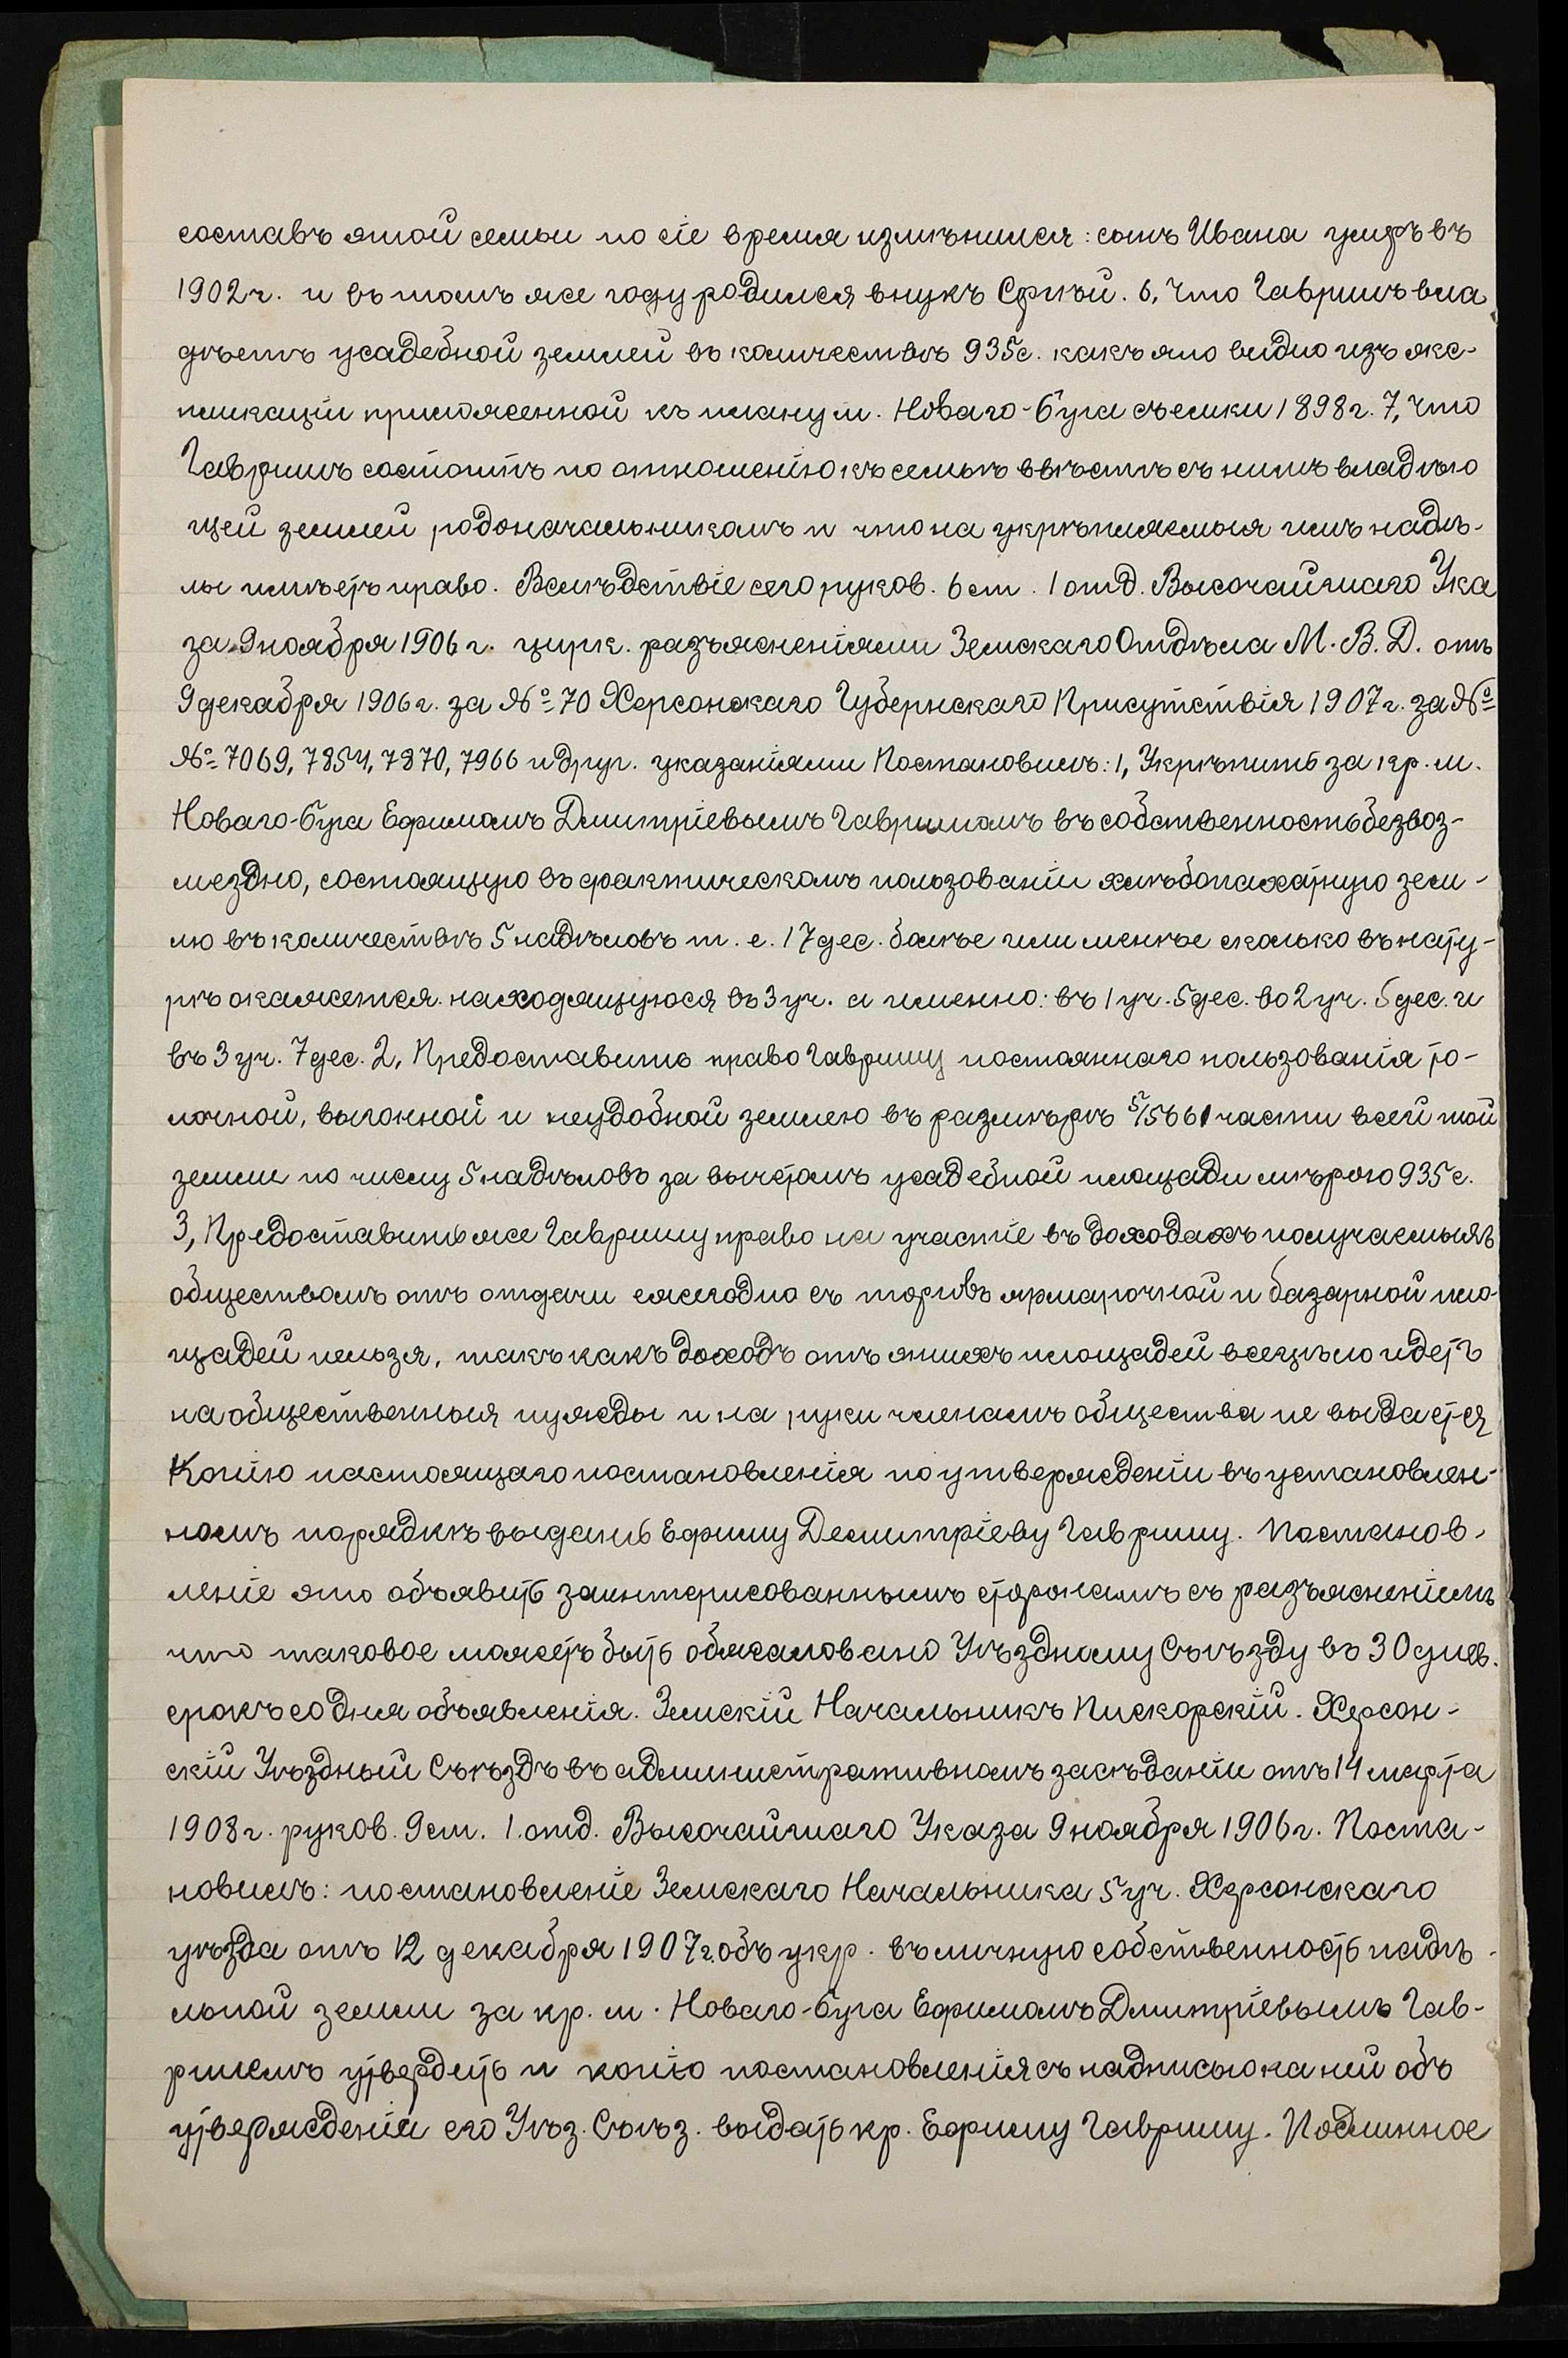 составъ этой семьи по сіе время измѣнился: сынъ Ивана умеръ въ
1902 г. и въ томъ же году родился внукъ Сергѣй. 6, Что Гавришъ вла
дѣетъ усадебной землей въ количествѣ 935 с. какъ это видно изъ экс-
пликаціи приложенной къ плану м. Новаго-Буга съемки 1898 г. 7, Что
Гавришъ состоитъ по отношенію къ семьѣ вмѣстѣ съ нимъ владѣю
щей землей родоначальникомъ и что на укрѣпляемыя имъ надѣ-
лы имѣетъ право. Вслѣдствіе сего руков. 6 ст. 1 отд. Высочайшаго Ука
за 9 ноября 1906 г. цирк. разъясненіями Земскаго Отдѣла М. В. Д. отъ
9 декабря 1906 г. за № 70 Херсонскаго Губернскаго Присутствія 1907 г. за №
№ 7069, 7854, 7870, 7966 и друг. указаніями Постановилъ: 1, Укрѣпить за кр. м.
Новаго-Буга Ефимомъ Дмитріевымъ Гавришомъ въ собственность безвоз-
мездно, состоящую въ фактическомъ пользованіи хлѣбопахатную зем-
лю въ количествѣ 5 надѣловъ т. е. 17 дес. болѣе или менѣе сколько въ нату-
рѣ окажется находящуюся въ 3 уч. а именно: въ 1 уч. 5 дес. во 2 уч. 5 дес. и
въ 3 уч. 7 дес. 2, Предоставить право Гавришу постояннаго пользованія то-
лочной, выгонной и неудобной землею въ размѣрѣ 5/15661 части всей той
земли по числу 5 надѣловъ за вычетомъ усадебной площади мѣрою 935 с.
3, Предоставить же Гавришу право на участіе въ доходахъ получаемыхъ
обществомъ отъ отдачи ежегодно съ торговъ ярмарочной и базарной пло-
щадей нельзя, такъ какъ доходъ отъ этихъ площадей всецѣло идетъ
на общественныя нужды и на руки членамъ общества не выдается
Копію настоящаго постановленія по утвержденіи въ установлен-
номъ порядкѣ выдать Ефиму Демитріеву Гавришу. Постанов-
леніе это объявить заинтерисованнымъ сторонамъ съ разъясненіемъ
что таковое можетъ быть обжаловано Уѣздному Съѣзду въ 30 днев.
срокъ со дня объявленія. Земскій Начальникъ Пискорскій. Херсон-
скій Уѣздный Съѣздъ въ административномъ засѣданіи отъ 14 марта
1908 г. руков. 9 ст. 1. отд. Высочайшаго Указа 9 ноября 1906 г. Поста-
новилъ: постановленіе Земскаго Начальника 5 уч. Херсонскаго
уѣзда отъ 12 декабря 1907 г. объ укр. въ личную собственность надѣ-
льной земли за кр. м. Новаго-Буга Ефимомъ Дмитріевымъ Гав-
ришемъ утвердить и копію постановленія съ надписью на ней объ
утвержденіи его Уѣз. Съѣз. выдать кр. Ефиму Гавришу. Подлинное